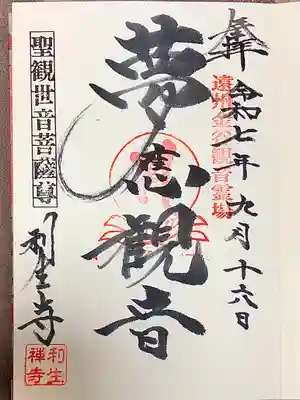 奉拝 令和七年九月十六日
遠州金谷観音霊場
夢應観音
聖観世音菩薩尊
利生寺
利生
禅寺